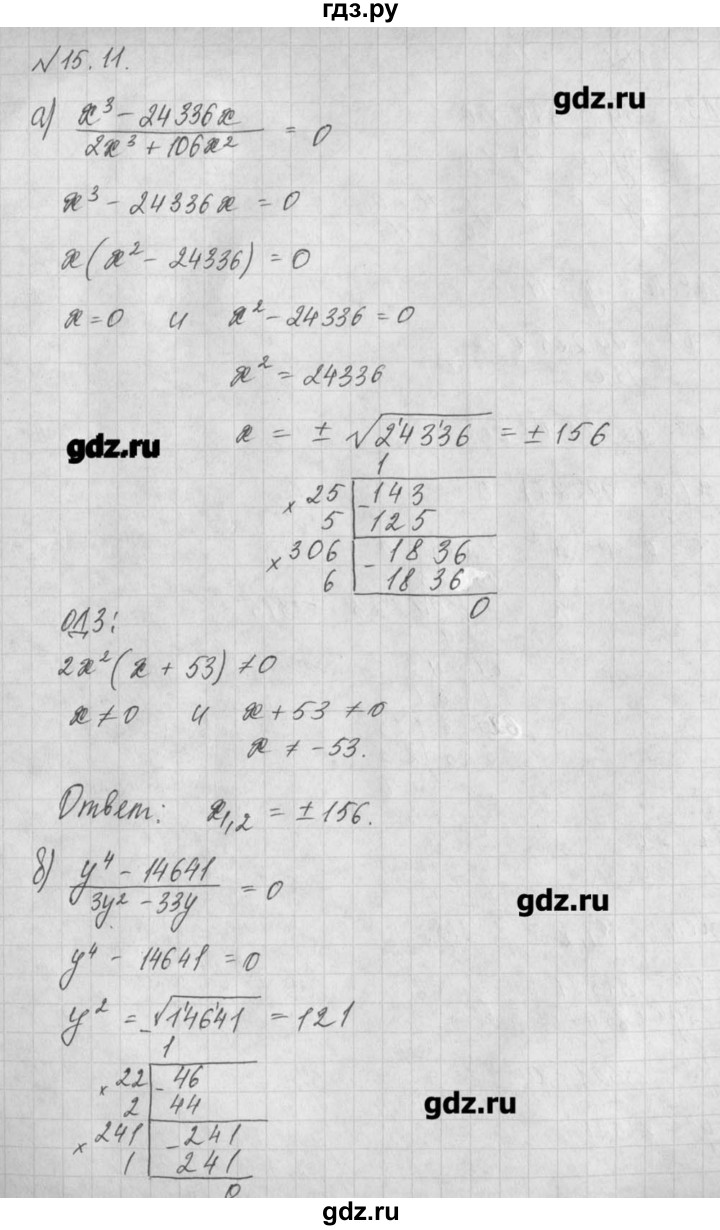 гдз.ру
№15.11.
gdz.ru
а) (x³ - 24336x)/(2x³ + 106x²) = 0
x³ - 24336x = 0
x(x² - 24336) = 0
x = 0 и x² - 24336 = 0
x² = 24336
gdz.ru
x = ± √24'3'36 = ± 156
1
× 25 | - 143
5 | 125
× 306 | - 18 36
6 | 18 36
0
ОДЗ:
2x²(x + 53) ≠ 0
x ≠ 0 и x + 53 ≠ 0
x ≠ - 53.
Ответ: x₁,₂ = ± 156.
б) (y⁴ - 14641)/(3y² - 33y) = 0
gdz.ru
y⁴ - 14641 = 0
y² = √1'46'41 = 121
1
× 22 | - 46
2 | 44
gdz.ru
× 241 | - 241
1 | 241
0
gdz.ru